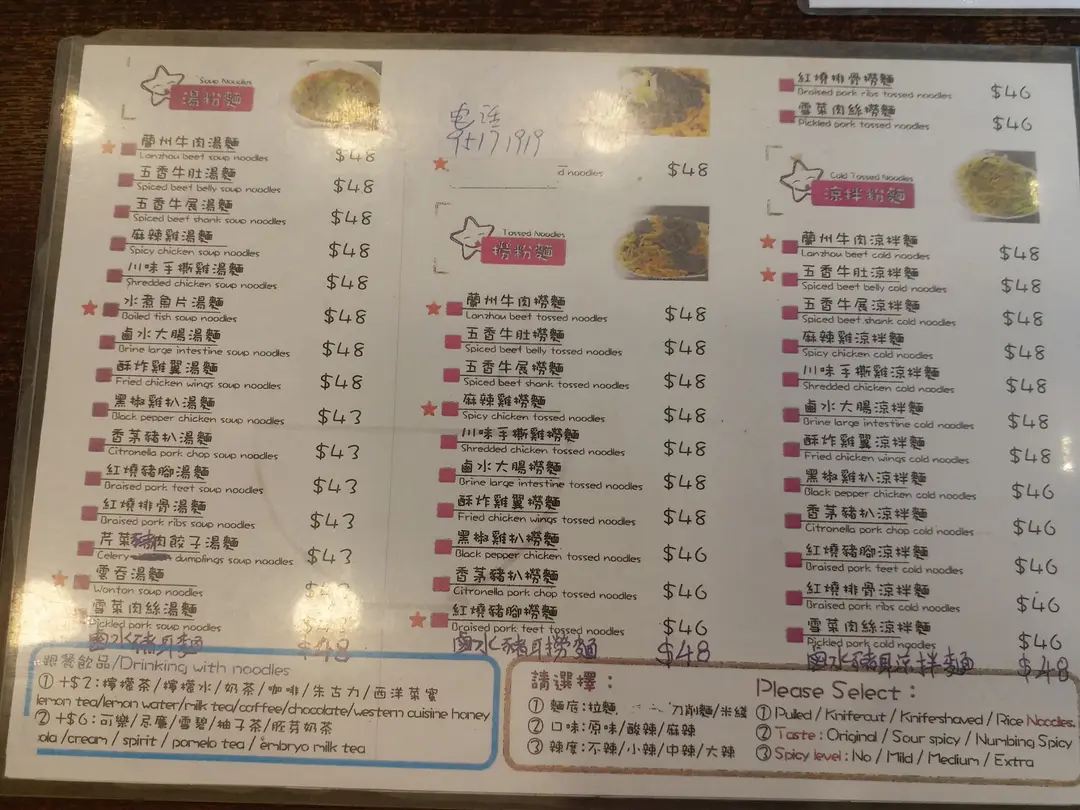 Soup Noodles
湯粉麵
蘭州牛肉湯麵
Lanzhou beef soup noodles $48
五香牛肚湯麵
Spiced beef belly soup noodles $48
五香牛展湯麵
Spiced beef shank soup noodles $48
麻辣雞湯麵
Spicy chicken soup noodles $48
川味手撕雞湯麵
Shredded chicken soup noodles $48
水煮魚片湯麵
Boiled fish soup noodles $48
鹵水大腸湯麵
Brine large intestine soup noodles $48
酥炸雞翼湯麵
Fried chicken wings soup noodles $48
黑椒雞扒湯麵
Black pepper chicken soup noodles $43
香茅豬扒湯麵
Citronella pork chop soup noodles $43
紅燒豬腳湯麵
Braised pork feet soup noodles $43
紅燒排骨湯麵
Braised pork ribs soup noodles $43
芹菜豬肉餃子湯麵
Celery dumplings soup noodles $43
雲吞湯麵
Wonton soup noodles
雪菜肉絲湯麵
Pickled pork soup noodles
鹵水豬耳麵 $48
跟餐飲品/Drinking with noodles
①+$2:檸檬茶/檸檬水/奶茶/咖啡/朱古力/西洋菜蜜
lemon tea/lemon water/milk tea/coffee/chocolate/western cuisine honey
②+$6:可樂/忌廉/雪碧/柚子茶/胚芽奶茶
ola/cream/spirit/pomelo tea/embryo milk tea
电话
95171919
d noodles $48
Tossed Noodles
撈粉麵
蘭州牛肉撈麵
Lanzhou beef tossed noodles $48
五香牛肚撈麵
Spiced beef belly tossed noodles $48
五香牛展撈麵
Spiced beef shank tossed noodles $48
麻辣雞撈麵
Spicy chicken tossed noodles $48
川味手撕雞撈麵
Shredded chicken tossed noodles $48
鹵水大腸撈麵
Brine large intestine tossed noodles $48
酥炸雞翼撈麵
Fried chicken wings tossed noodles $48
黑椒雞扒撈麵
Black pepper chicken tossed noodles $46
香茅豬扒撈麵
Citronella pork chop tossed noodles $46
紅燒豬腳撈麵
Braised pork feet tossed noodles $46
鹵水豬耳撈麵 $48
紅燒排骨撈麵
Braised pork ribs tossed noodles $46
雪菜肉絲撈麵
Pickled pork tossed noodles $46
Cold Tossed Noodles
涼拌粉麵
蘭州牛肉涼拌麵
Lanzhou beef cold noodles $48
五香牛肚涼拌麵
Spiced beef belly cold noodles $48
五香牛展涼拌麵
Spiced beef shank cold noodles $48
麻辣雞涼拌麵
Spicy chicken cold noodles $48
川味手撕雞涼拌麵
Shredded chicken cold noodles $48
鹵水大腸涼拌麵
Brine large intestine cold noodles $48
酥炸雞翼涼拌麵
Fried chicken wings cold noodles $48
黑椒雞扒涼拌麵
Black pepper chicken cold noodles $46
香茅豬扒涼拌麵
Citronella pork chop cold noodles $46
紅燒豬腳涼拌麵
Braised pork feet cold noodles $46
紅燒排骨涼拌麵
Braised pork ribs cold noodles $46
雪菜肉絲涼拌麵
Pickled pork cold noodles $46
鹵水豬耳涼拌麵 $48
請選擇:
①麵底:拉麵 刀削麵/米綫
②口味:原味/酸辣/麻辣
③辣度:不辣/小辣/中辣/大辣
Please Select:
①Pulled/Knifecut/Knifeshaved/Rice Noodles.
②Taste:Original/Sour spicy/Numbing Spicy
③Spicy level:No/Mild/Medium/Extra